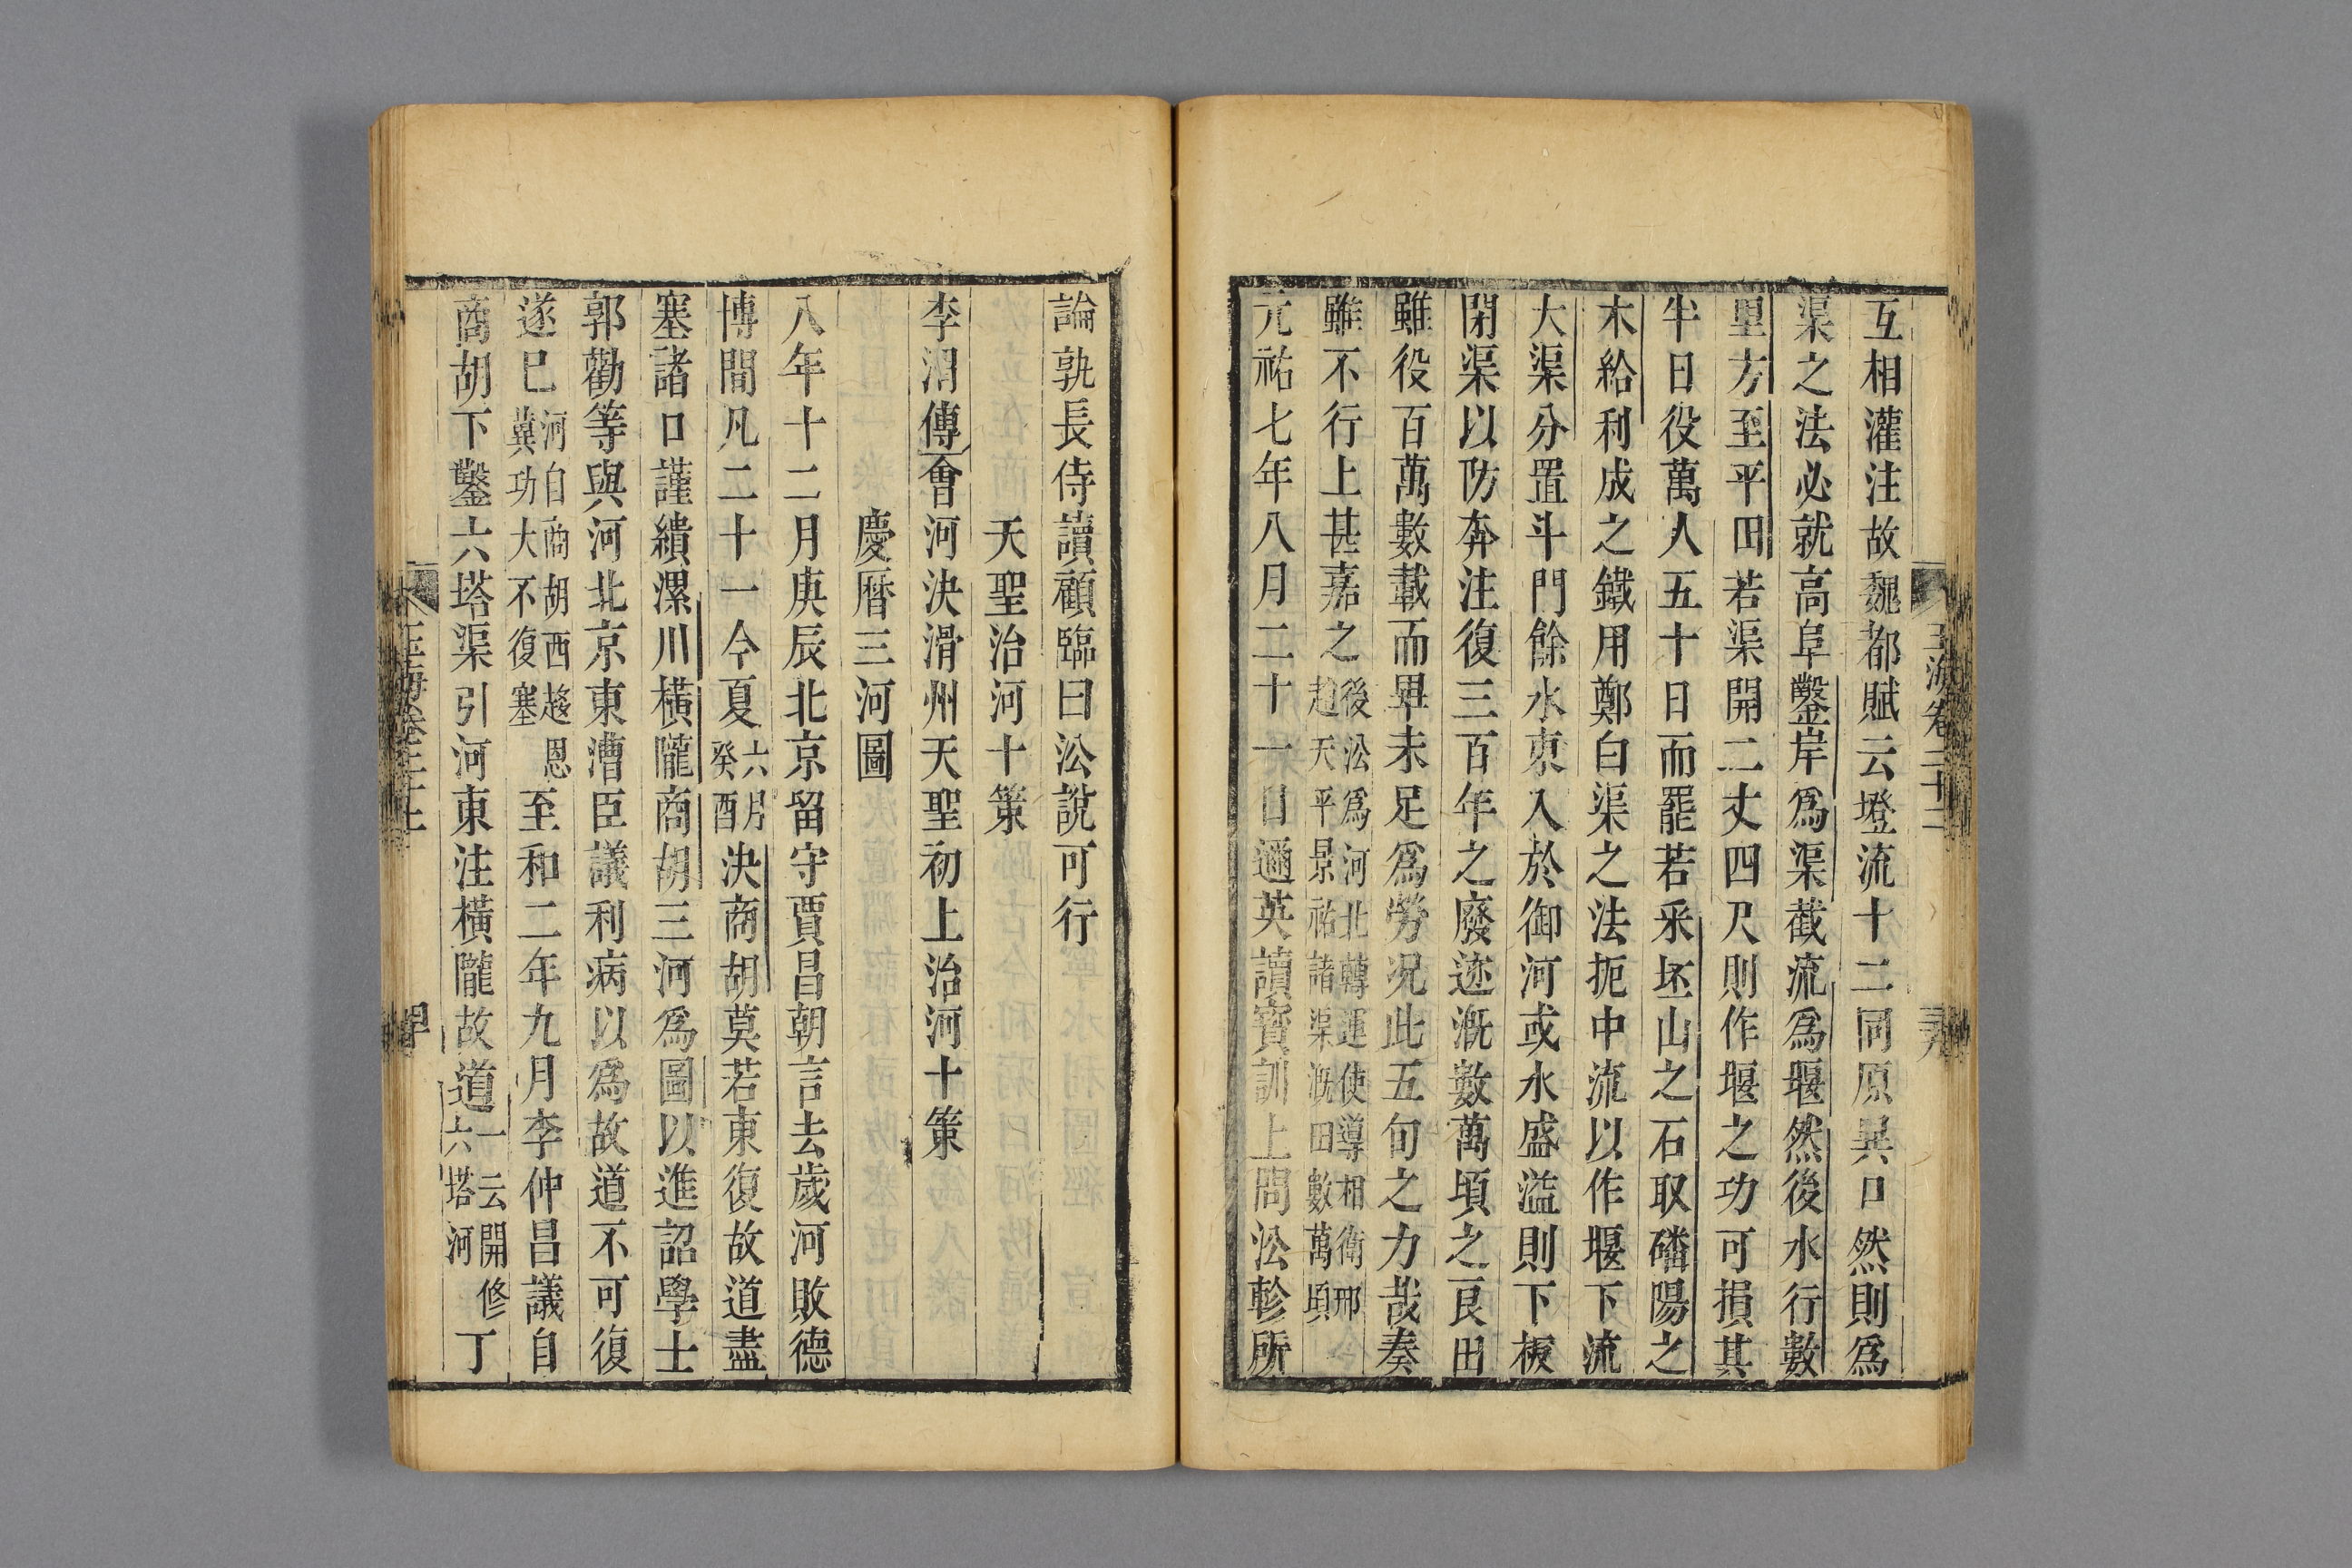 互相灌注故魏都賦云墱流十二同原異口然則爲
渠之法必就高阜鑿岸爲渠截流爲堰然後水行數
里方至平田若渠開二丈四尺則作堰之功可損其
半日役萬人五十日而罷若釆坯山之石取磻陽之
木給利成之鐵用鄭白渠之法扼中流以作堰下流
大渠分置斗門餘水東入於御河或水盛溢則下板
閉渠以防奔注復三百年之廢迹漑數萬頃之良田
雖役百萬數載而畢未足爲勞况此五旬之力哉奏
雖不行上甚嘉之後㳂爲河北轉運使導相衛邢
趙天平景祐諸渠漑田數萬頃
元祐七年八月二十一日邇英讀寶訓上問㳂軫所
玉海卷二十二
論孰長侍讀顧臨曰㳂說可行
天聖治河十策
李渭傳會河決滑州天聖初上治河十策
慶曆三河圖
八年十二月庚辰北京留守賈昌朝言去歲河敗德
博間凡二十一今夏六月
癸酉決商胡莫若東復故道盡
塞諸口謹繢漯川橫隴商胡三河爲圖以進詔學士
郭勸等與河北京東漕臣議利病以爲故道不可復
遂巳河自商胡西趨恩
冀功大不復塞至和二年九月李仲昌議自
商胡下鑿六塔渠引河東注橫隴故道一云開修
六塔河丁